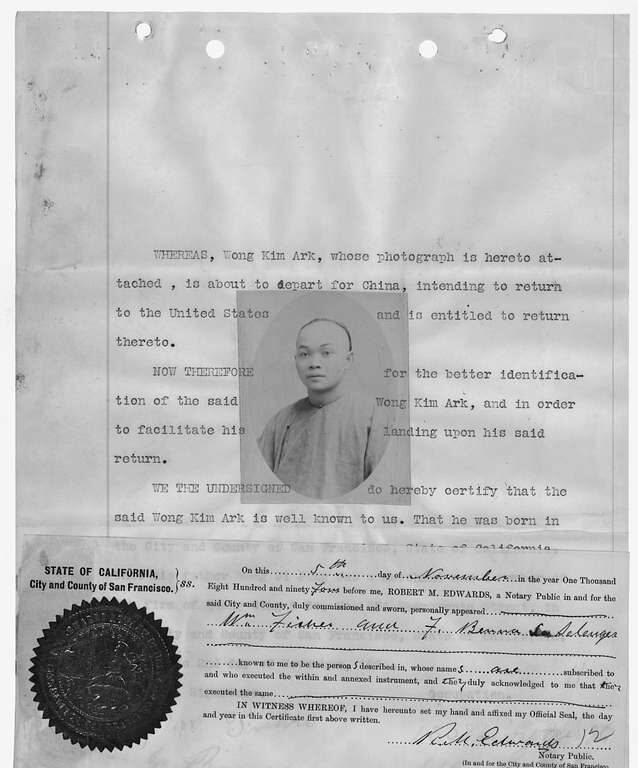 WHEREAS, Wong Kim Ark, whose photograph is hereto at-
tached , is about to depart for China, intending to return
to the United States and is entitled to return
thereto.
NOW THEREFORE for the better identifica-
tion of the said Wong Kim Ark, and in order
to facilitate his landing upon his said
return.
WE THE UNDERSIGNED do hereby certify that the
said Wong Kim Ark is well known to us. That he was born in
the City and County of San Francisco, State of California
STATE OF CALIFORNIA,
City and County of San Francisco. } ss.
On this 5th day of November in the year One Thousand
Eight Hundred and ninety four before me, ROBERT M. EDWARDS, a Notary Public in and for the
said City and County, duly commissioned and sworn, personally appeared
Wm Fisher and F. Benna
known to me to be the person s described in, whose name s are subscribed to
and who executed the within and annexed instrument, and they duly acknowledged to me that they
executed the same
IN WITNESS WHEREOF, I have hereunto set my hand and affixed my Official Seal, the day
and year in this Certificate first above written.
R. M. Edwards
Notary Public.
(In and for the City and County of San Francisco